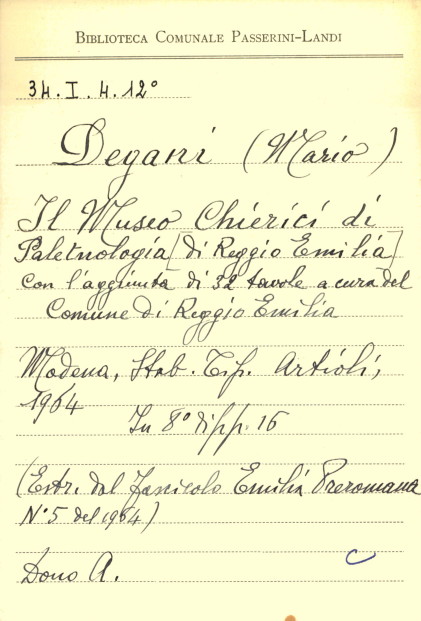 BIBLIOTECA COMUNALE PASSERINI-LANDI
34.I.4.12°
Degani (Mario)
Il Museo Chierici di
Paletnologia [di Reggio Emilia]
con l'aggiunta di 32 tavole a cura del
Comune di Reggio Emilia
Modena, Stab. Tip. Artioli,
1964
In 8° di pp. 16
(Estr. dal Fascicolo Emilia Preromana
N° 5 del 1964)
Dono A.